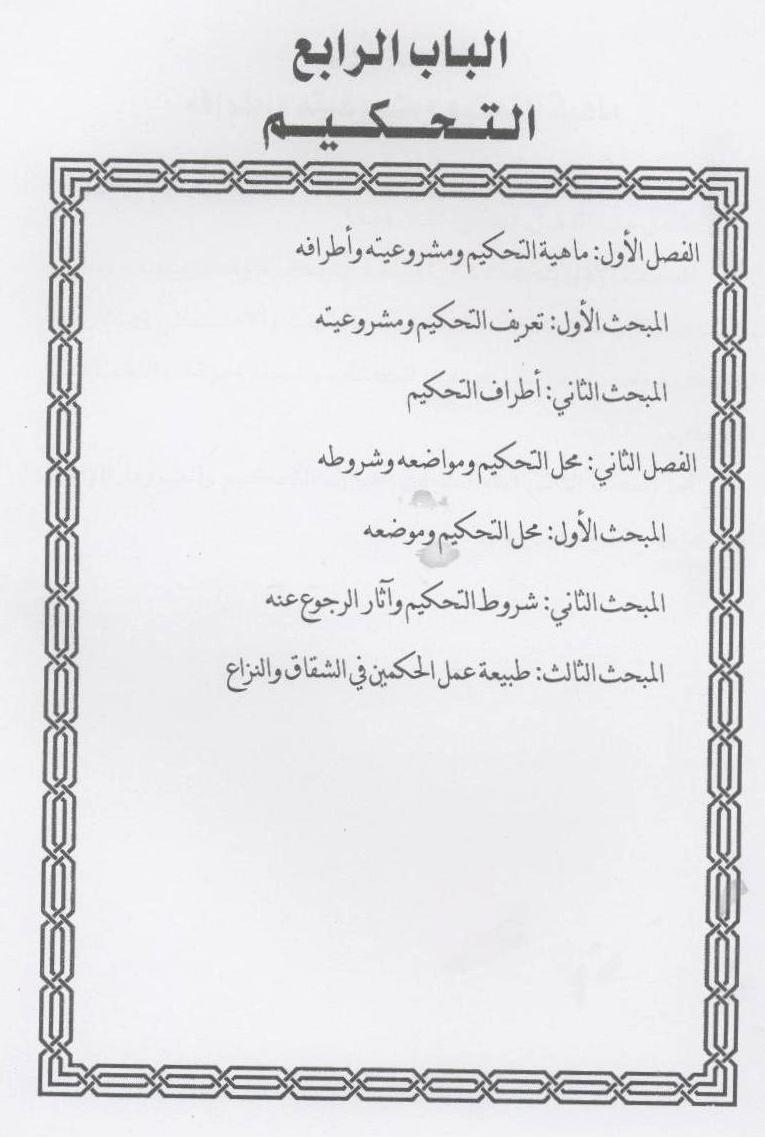 الباب الرابع
التحكيم
الفصل الأول: ماهية التحكيم ومشروعيته وأطرافه
المبحث الأول: تعريف التحكيم ومشروعيته
المبحث الثاني: أطراف التحكيم
الفصل الثاني: محل التحكيم ومواضعه وشروطه
المبحث الأول: محل التحكيم وموضعه
المبحث الثاني: شروط التحكيم وآثار الرجوع عنه
المبحث الثالث: طبيعة عمل الحكمين في الشقاق والنزاع